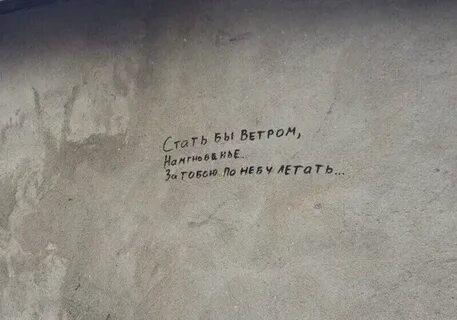 Стать бы ветром,
На мгновенье..
За тобою по небу летать...